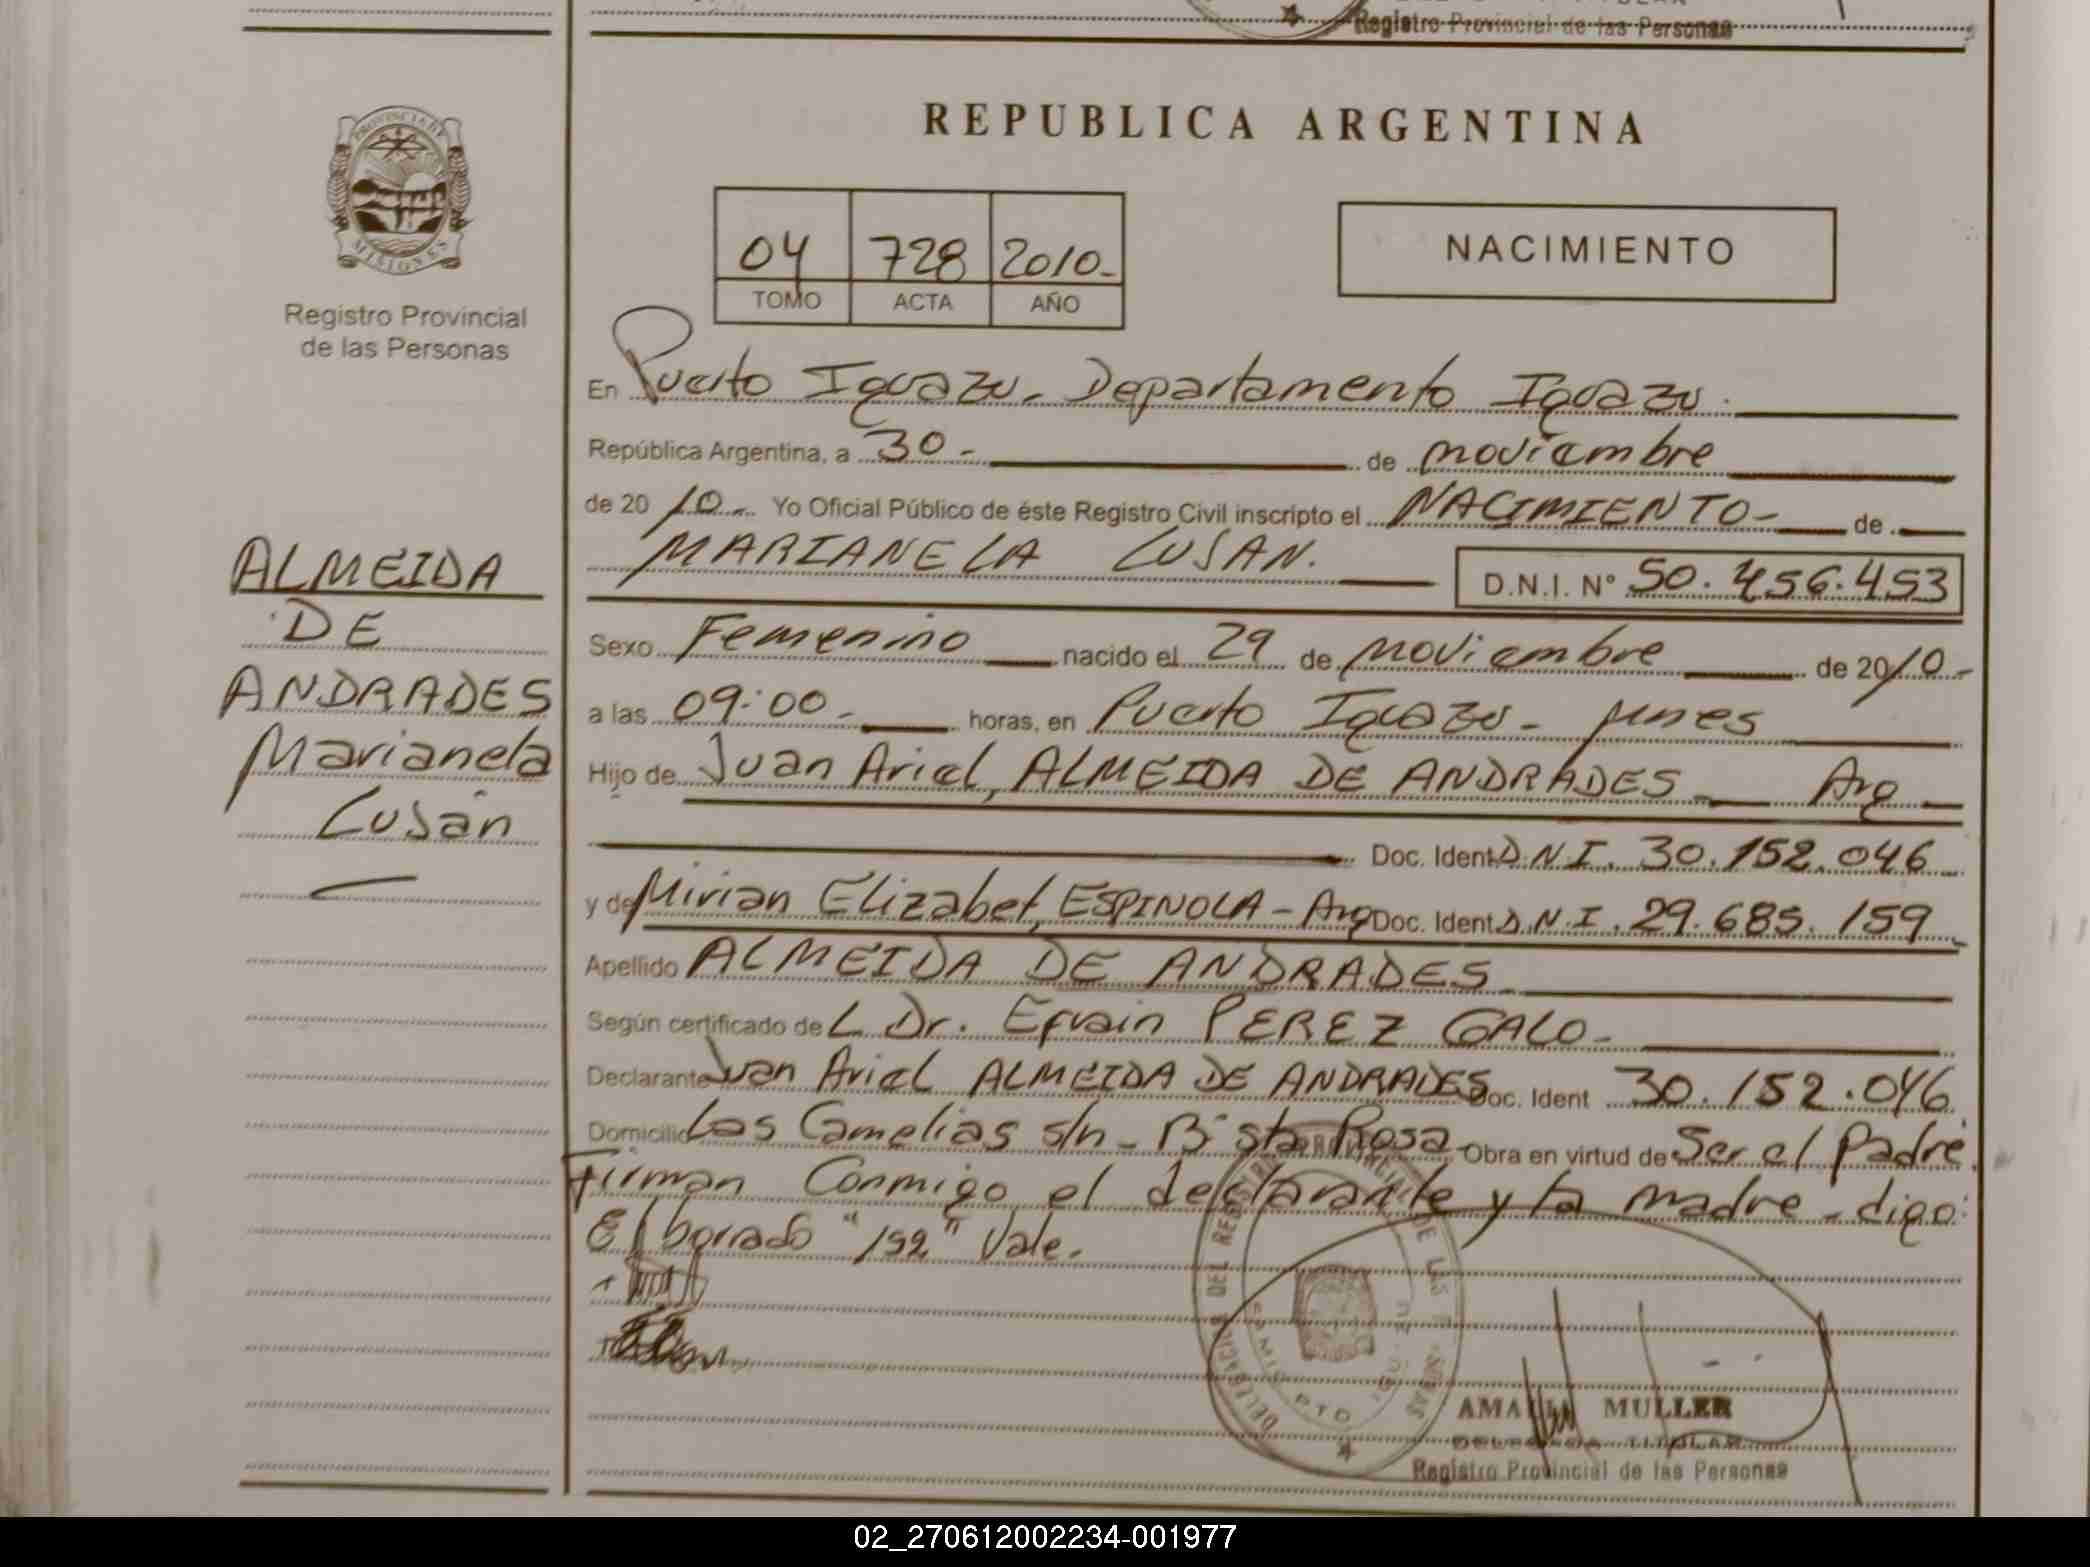 Registro Provincial de las Personas
PROVINCIA DE
MISIONES
Registro Provincial
de las Personas
ALMEIDA
DE
ANDRADES
Marianela
Lusán
REPUBLICA ARGENTINA
04 728 2010-
TOMO ACTA AÑO
NACIMIENTO
En Puerto Iguazu - Departamento Iguazu
República Argentina, a 30 - de noviembre
de 20 10 - Yo Oficial Público de éste Registro Civil inscripto el NACIMIENTO - de
MARIANELA LUSAN. D.N.I. N° 50.456.453
Sexo Femenino nacido el 29 de noviembre de 2010-
a las 09:00 - horas, en Puerto Iguazu - Mnes
Hijo de Juan Ariel, ALMEIDA DE ANDRADES Arg
Doc. Ident D.N.I. 30.152.046
y de Mirian Elizabet, ESPINOLA - Arg Doc. Ident D.N.I. 29.685.159
Apellido ALMEIDA DE ANDRADES
Según certificado de L Dr. Efrain PEREZ GALO -
Declarante Juan Ariel ALMEIDA DE ANDRADES Doc. Ident 30.152.046
Domicilio Las Camelias s/n - B° sta Rosa Obra en virtud de Ser el Padre.
Firman Conmigo el declarante y la madre - digo:
El borrado "152" Vale.
DELEGACIA DEL REGISTRO PROVINCIAL DE LAS PERSONAS
AMALIA MULLER
DELEGADA TITULAR
Registro Provincial de las Personas
02_270612002234-001977